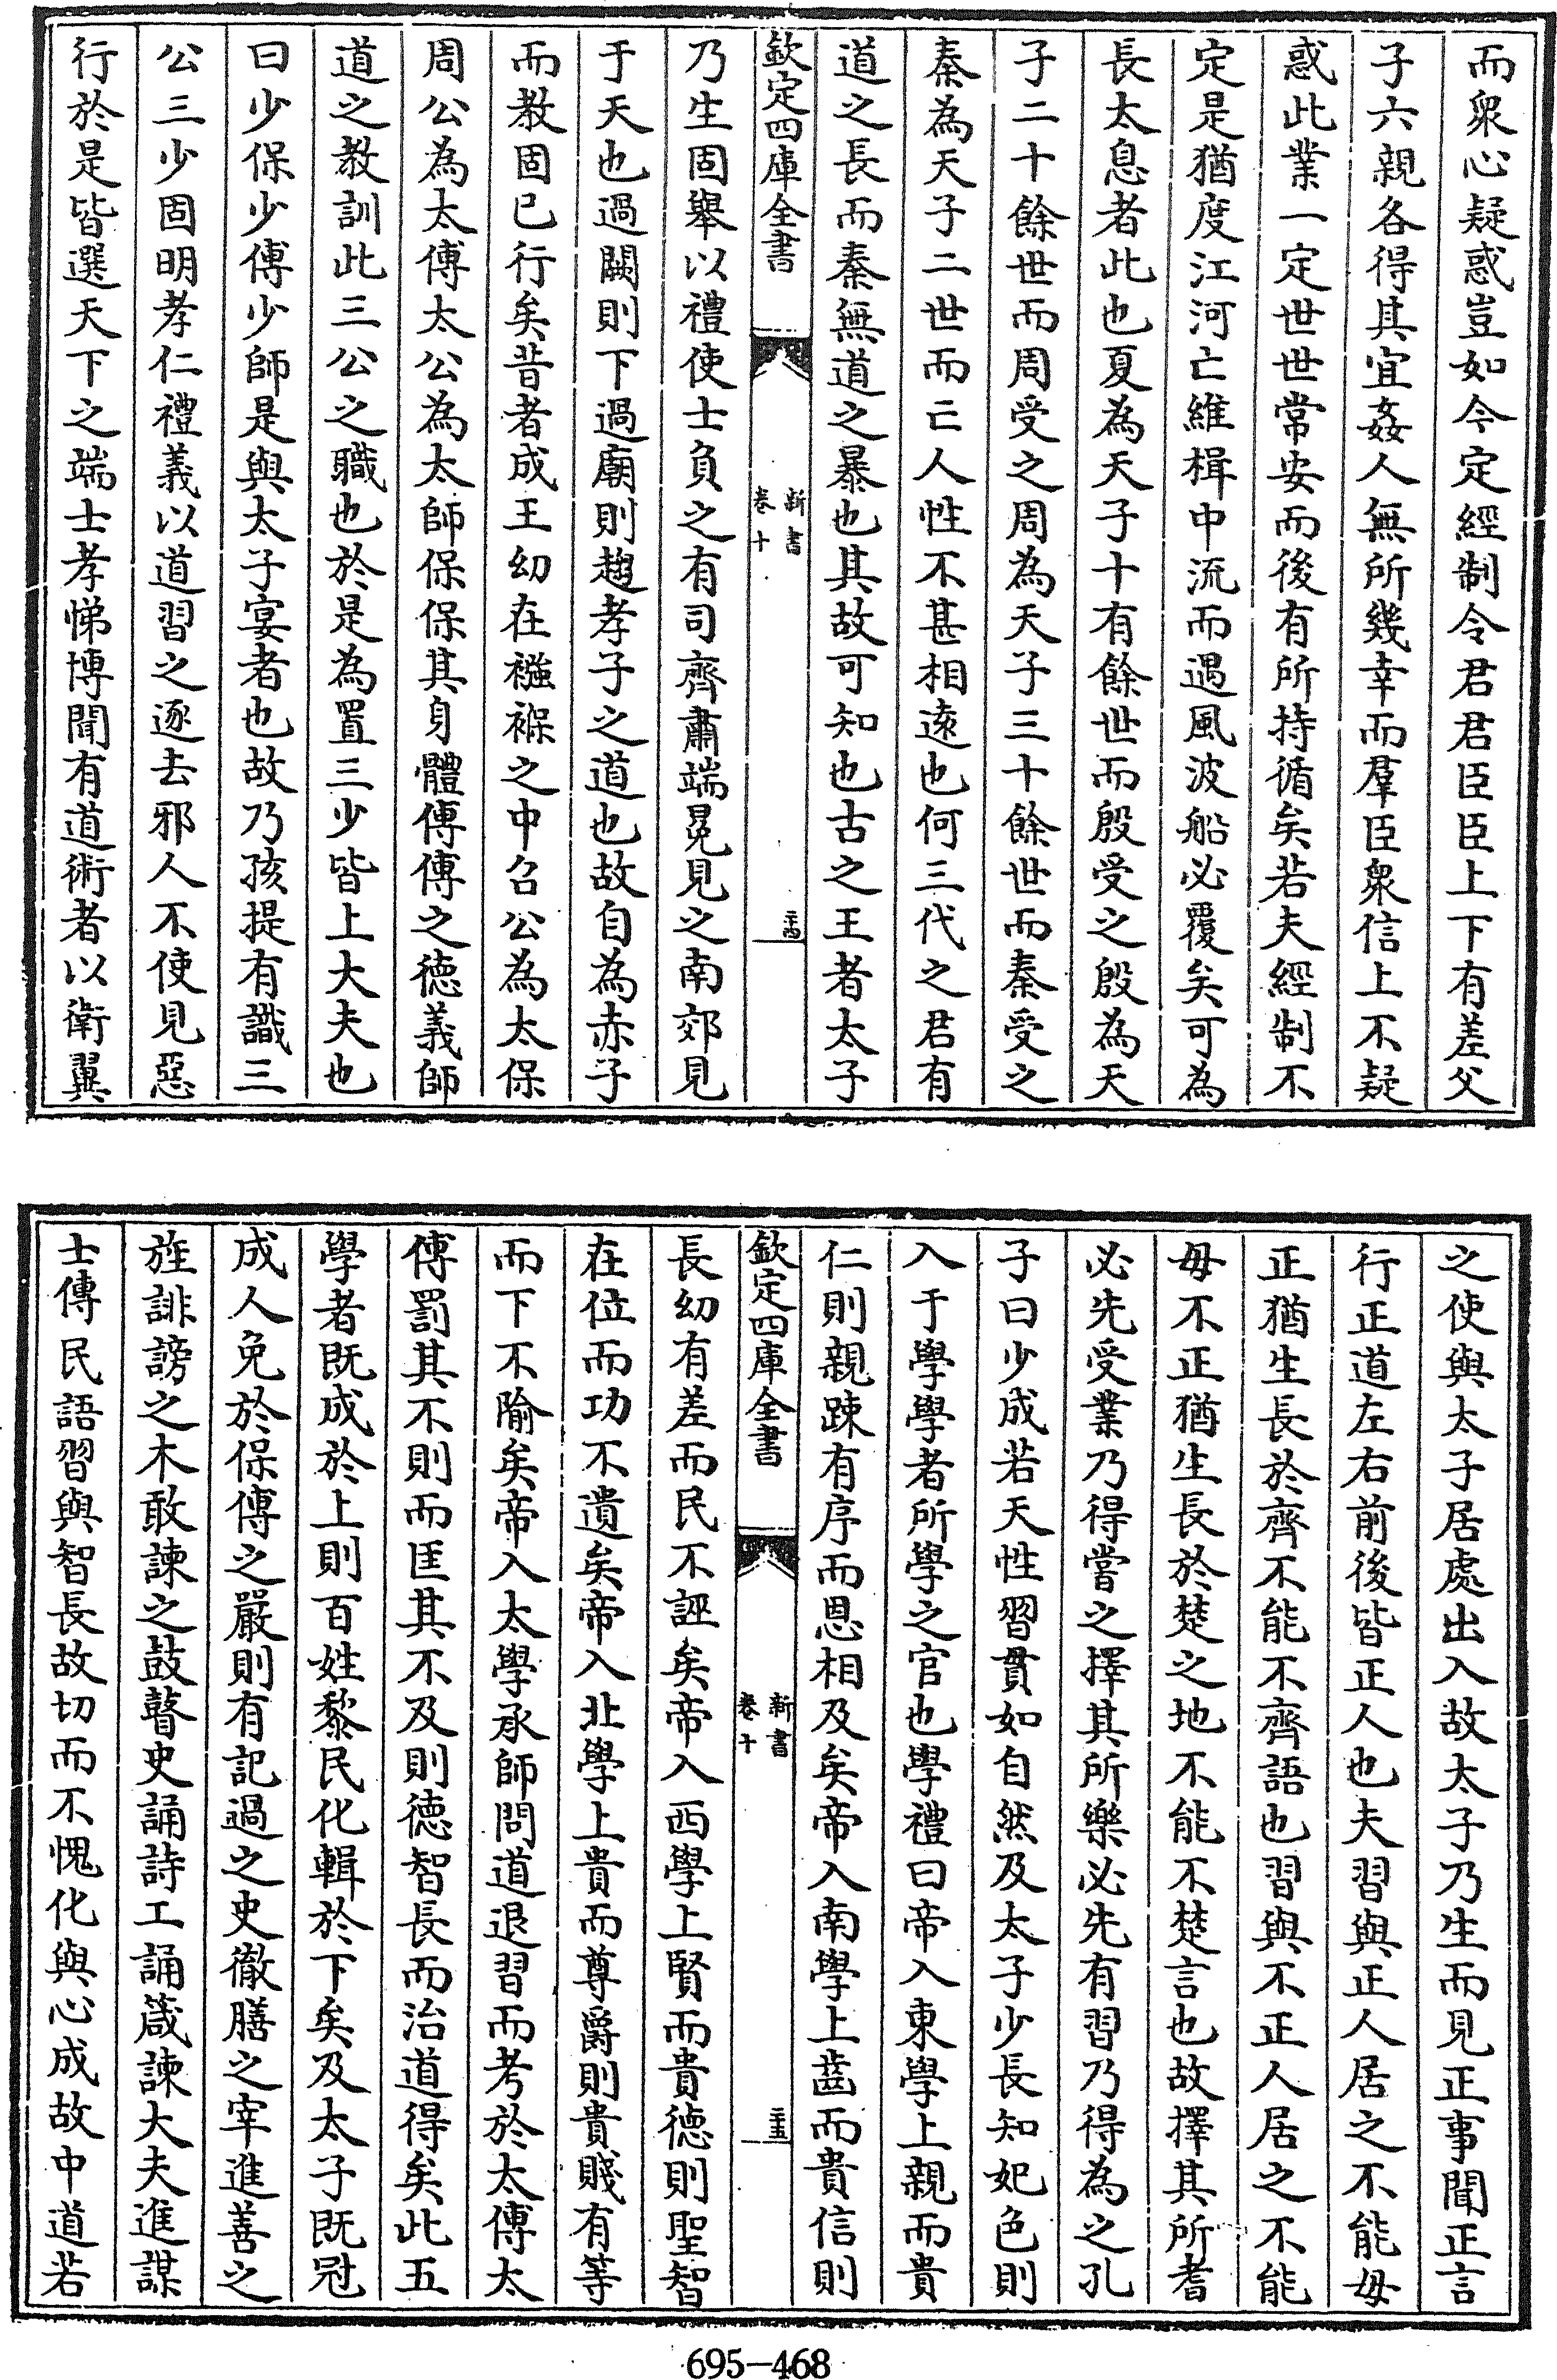 而衆心疑惑豈如今定經制令君君臣臣上下有差父
子六親各得其宜姦人無所幾幸而羣臣衆信上不疑
惑此業一定世世常安而後有所持循矣若夫經制不
定是猶度江河亡維楫中流而遇風波船必覆矣可為
長太息者此也夏為天子十有餘世而殷受之殷為天
子二十餘世而周受之周為天子三十餘世而秦受之
秦為天子二世而亡人性不甚相遠也何三代之君有
道之長而秦無道之暴也其故可知也古之王者太子
欽定四庫全書
新書
卷十
二十四
乃生固舉以禮使士負之有司齊肅端冕見之南郊見
于天也過闕則下過廟則趨孝子之道也故自為赤子
而教固已行矣昔者成王幼在襁褓之中召公為太保
周公為太傅太公為太師保保其身體傅傅之德義師
道之教訓此三公之職也於是為置三少皆上大夫也
曰少保少傅少師是與太子宴者也故乃孩提有識三
公三少固明孝仁禮義以道習之逐去邪人不使見惡
行於是皆選天下之端士孝悌博聞有道術者以衛翼
之使與太子居處出入故太子乃生而見正事聞正言
行正道左右前後皆正人也夫習與正人居之不能毋
正猶生長於齊不能不齊語也習與不正人居之不能
毋不正猶生長於楚之地不能不楚言也故擇其所耆
必先受業乃得嘗之擇其所樂必先有習乃得為之孔
子曰少成若天性習貫如自然及太子少長知妃色則
入于學學者所學之官也學禮曰帝入東學上親而貴
仁則親疎有序而恩相及矣帝入南學上齒而貴信則
欽定四庫全書
新書
卷十
二十五
長幼有差而民不誣矣帝入西學上賢而貴德則聖智
在位而功不遺矣帝入北學上貴而尊爵則貴賤有等
而下不隃矣帝入太學承師問道退習而考於太傅太
傅罰其不則而匡其不及則德智長而治道得矣此五
學者既成於上則百姓黎民化輯於下矣及太子既冠
成人免於保傅之嚴則有記過之史徹膳之宰進善之
旌誹謗之木敢諫之鼓瞽史誦詩工誦箴諫大夫進謀
士傳民語習與智長故切而不愧化與心成故中道若
695-468